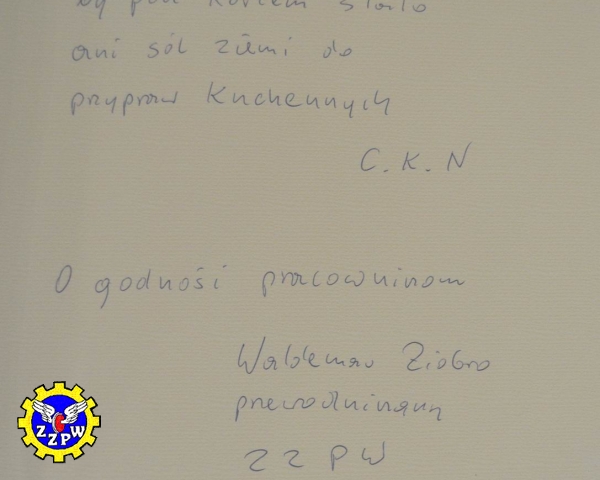 by pod korcem stało
ani sól ziemi do
przypraw kuchennych
C. K. N
O godności pracownikom
Waldemar Ziobro
przewodniczący
ZZPW
ZZPW